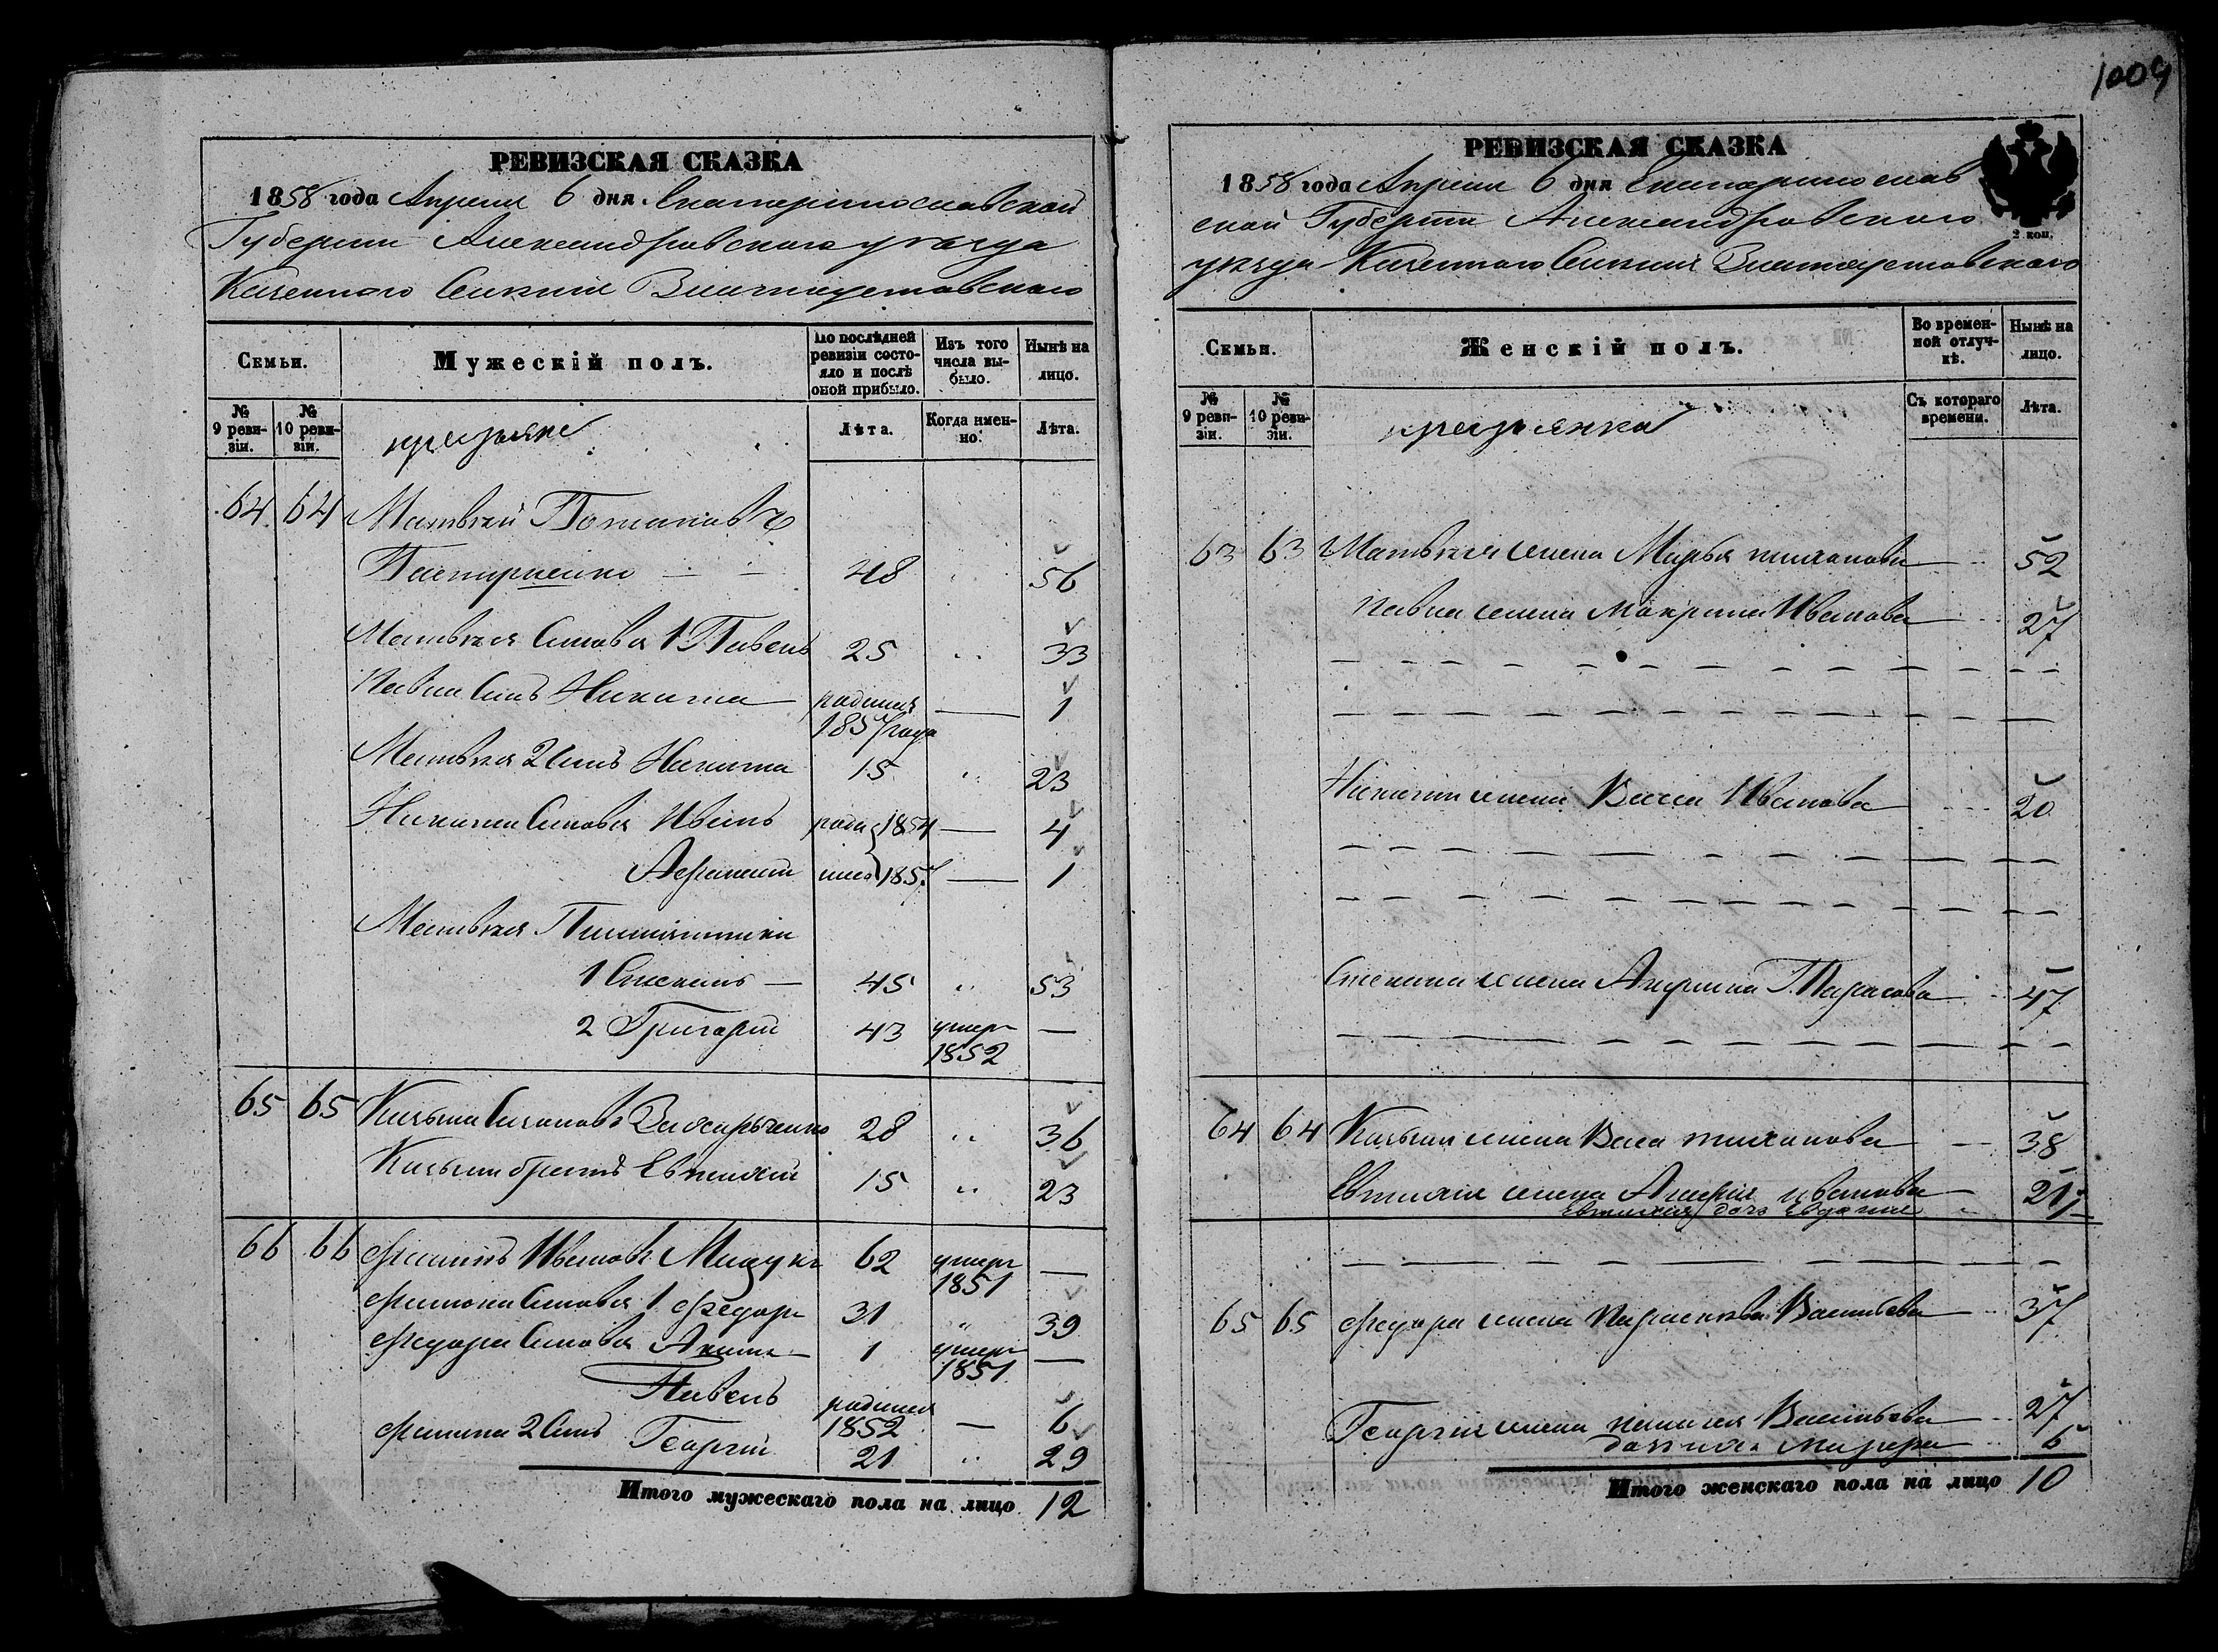 РЕВИЗСКАЯ СКАЗКА
1858 года Апреля 6 дня Екатеринославской
Губернии Александровского уезда
Казенного Селения Златоустовского
Семьи.
Мужескій полъ.
По послѣдней ревизіи состояло и послѣ оной прибыло.
Изъ того числа выбыло.
Нынѣ на лицо.
№ 9 ревизіи.
№ 10 ревизіи.
крестьяне
Лѣта.
Когда именно.
Лѣта.
64 64 Матвей
48 56
Матвея Сыновья 1 Павелъ 25 33
Павла Сынъ Никита родился 1857 года 1
Матвея 2 Сынъ Никита 15 23
Никиты Сыновья Иванъ роди 1854 4
Афанасий лися 1857 1
Матвея Племянники
1 Степанъ 45 53
2 Григорий 43 умер 1852 —
65 65 Кузьма 28 36
Кузьмы братъ Евтихий 15 23
66 66 Филипъ Иванов 62 умер 1851 —
Филипа Сыновья 1 Федоръ 31 39
Федора Сыновья Аким 1 умер 1851 —
Павелъ родился 1852 — 6
Филипа 2 Сынъ Георгий 21 29
Итого мужескаго пола на лицо 12
1009
РЕВИЗСКАЯ СКАЗКА
1858 года Апреля 6 дня Екатеринослав
ской Губернии Александровского
уезда Казенного Селения Златоустовского
2 коп.
Семьи.
Женскій полъ.
Во временной отлучкѣ.
Нынѣ на лицо.
№ 9 ревизіи.
№ 10 ревизіи.
крестьянки
Съ котораго времени.
Лѣта.
63 63 Матвея жена Марья тихонова 52
Павла жена Макрина Иванова 27
Никиты жена Васса Иванова 20
Степана жена Тарасова 47
64 64 Кузьмы жена Васа тихонова 38
Евтихия жена иванова 21
Евтихия дочь Евдокия
65 65 Федора жена Васильева 37
Георгия жена Васильева 27
6
Итого женскаго пола на лицо 10